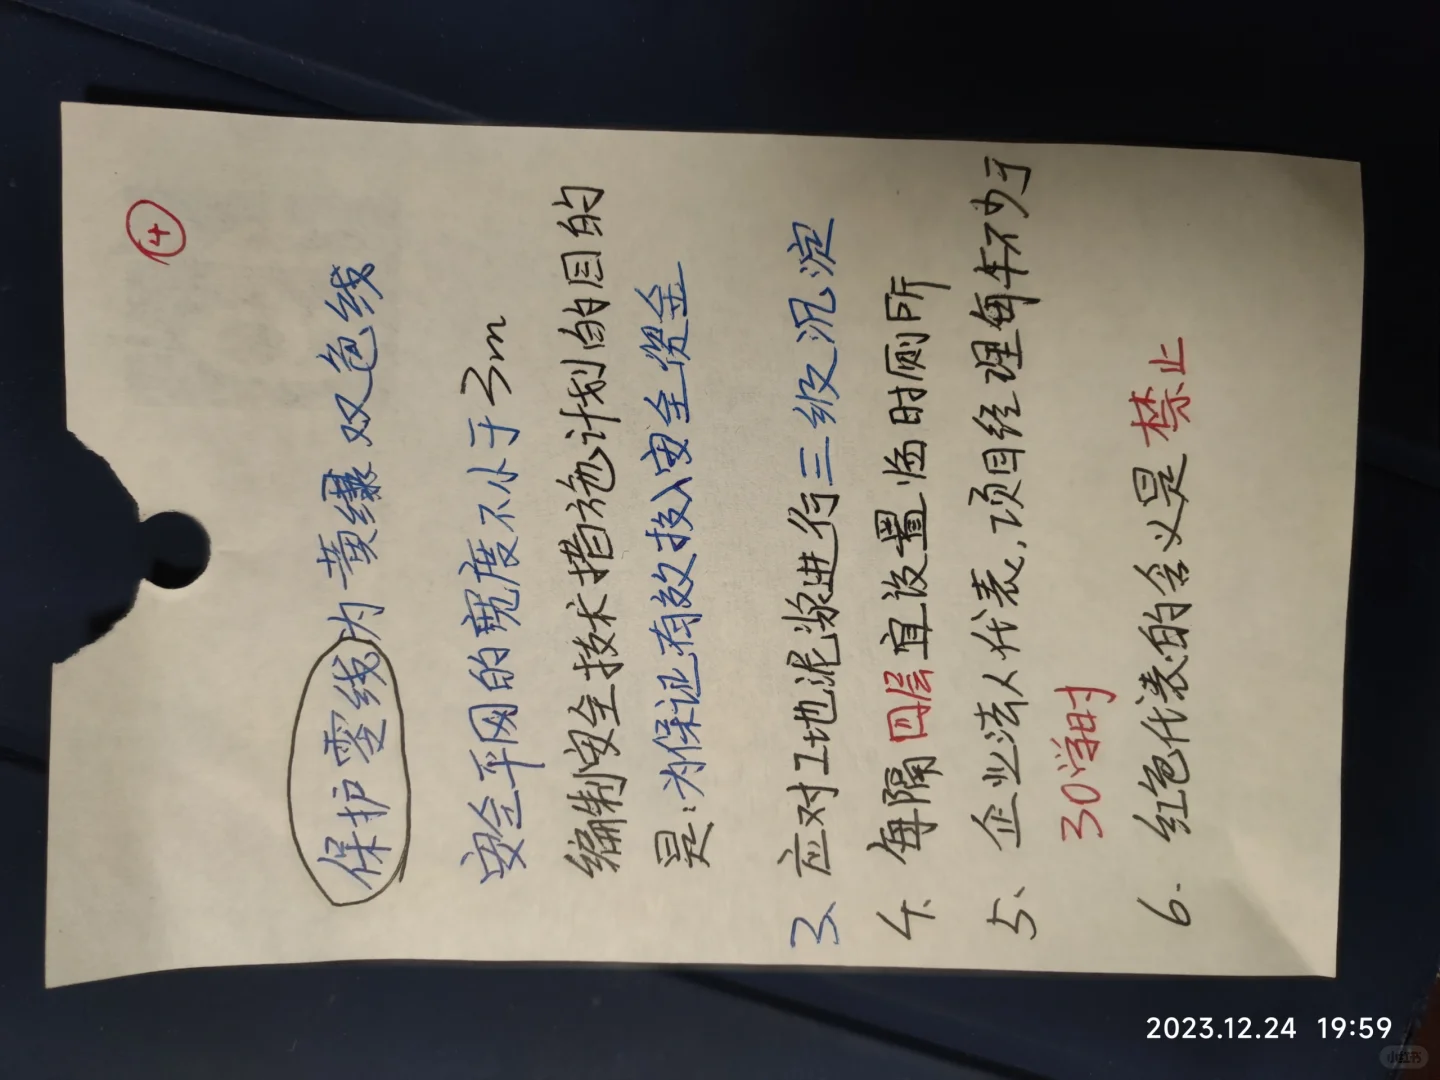 ④
保护零线为黄绿双色线
安全平网的宽度不小于3m
编制安全技术措施计划的目的
是:为保证有效投入安全资金
3、应对工地泥浆进行三级沉淀
4、每隔四层宜设置临时厕所
5、企业法人代表,项目经理每年不少于
30学时
6. 红色代表的含义是禁止
2023.12.24 19:59
小红书